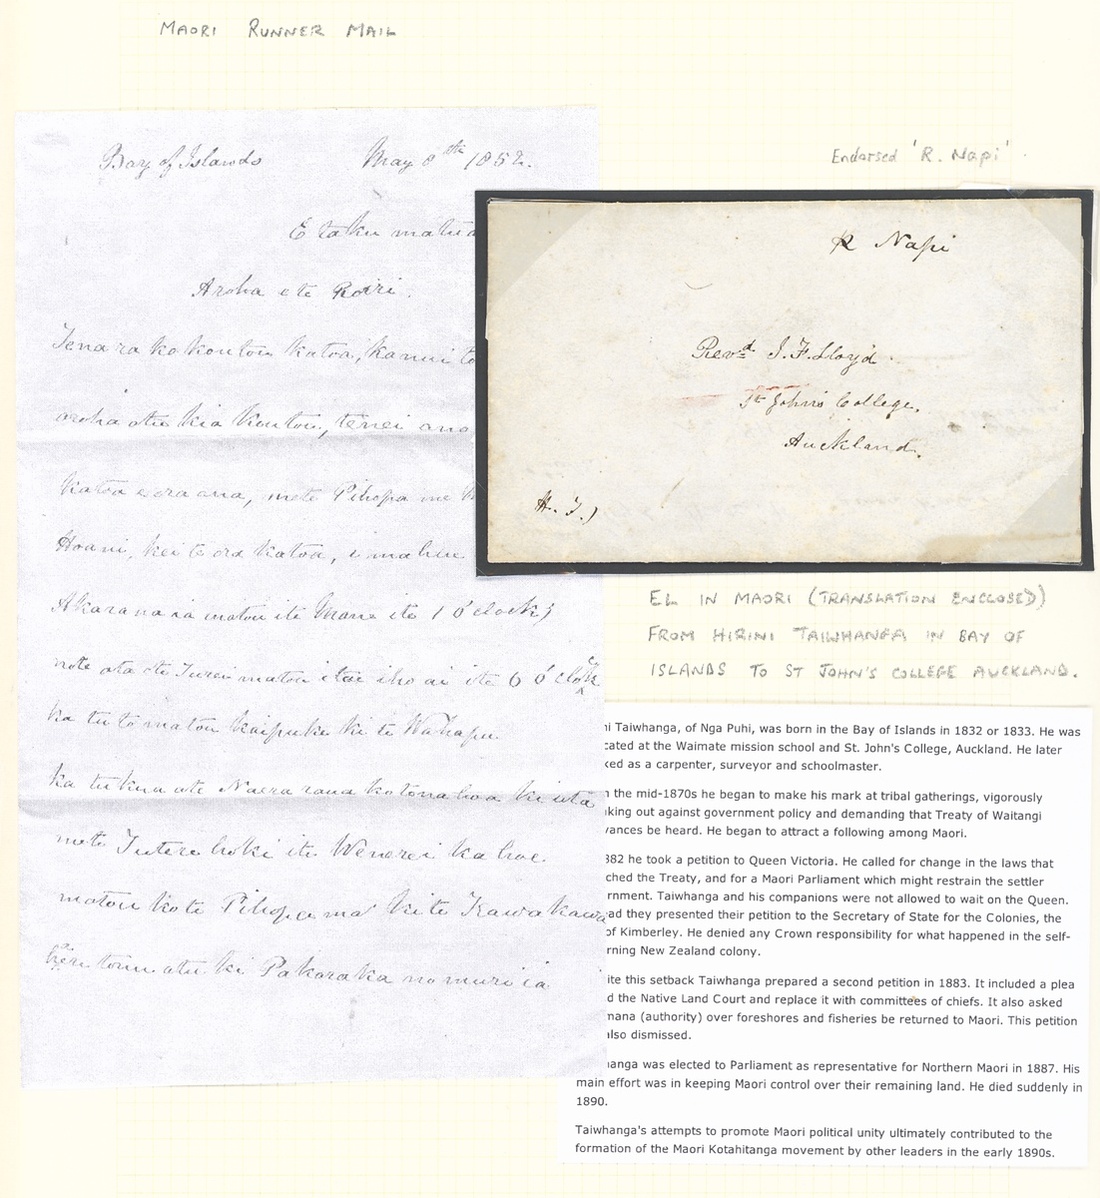 MAORI RUNNER MAIL
Bay of Islands May 8th 1852.
E taku matua
Aroha ote Roiri.
Tena ra ko koutou katoa, ka nui to
aroha atu kia koutou, tenei ano
katoa e ora ana, mete Pihopa me
Hoani, kei te ora katoa, i mahue
Akarana ia matou ite Mane ite 1 O'clock,
note ata ote Turei matou itae iho ai ite 6 O'clock
ka tu to matou kaipuke ki te Wahapu.
ka tukua ate Naera raua ko tona hoa ki uta
mete Tutere hoki ite Wenerei ka hoe.
matou kote Pihopa ma ki te Kawakawa
tonu atu ki Pakaraka no muri ia
Endorsed 'R. Napi'.
R Napi
Revd. J. F. Lloyd.
St Johns College.
Auckland.
H. T.)
EL IN MAORI (TRANSLATION ENCLOSED)
FROM HIRINI TAIWHANGA IN BAY OF
ISLANDS TO ST JOHN'S COLLEGE AUCKLAND.
ni Taiwhanga, of Nga Puhi, was born in the Bay of Islands in 1832 or 1833. He was
cated at the Waimate mission school and St. John's College, Auckland. He later
ked as a carpenter, surveyor and schoolmaster.
n the mid-1870s he began to make his mark at tribal gatherings, vigorously
aking out against government policy and demanding that Treaty of Waitangi
vances be heard. He began to attract a following among Maori.
882 he took a petition to Queen Victoria. He called for change in the laws that
ched the Treaty, and for a Maori Parliament which might restrain the settler
rnment. Taiwhanga and his companions were not allowed to wait on the Queen.
ad they presented their petition to the Secretary of State for the Colonies, the
of Kimberley. He denied any Crown responsibility for what happened in the self-
rning New Zealand colony.
ite this setback Taiwhanga prepared a second petition in 1883. It included a plea
d the Native Land Court and replace it with committees of chiefs. It also asked
mana (authority) over foreshores and fisheries be returned to Maori. This petition
also dismissed.
hanga was elected to Parliament as representative for Northern Maori in 1887. His
main effort was in keeping Maori control over their remaining land. He died suddenly in
1890.
Taiwhanga's attempts to promote Maori political unity ultimately contributed to the
formation of the Maori Kotahitanga movement by other leaders in the early 1890s.